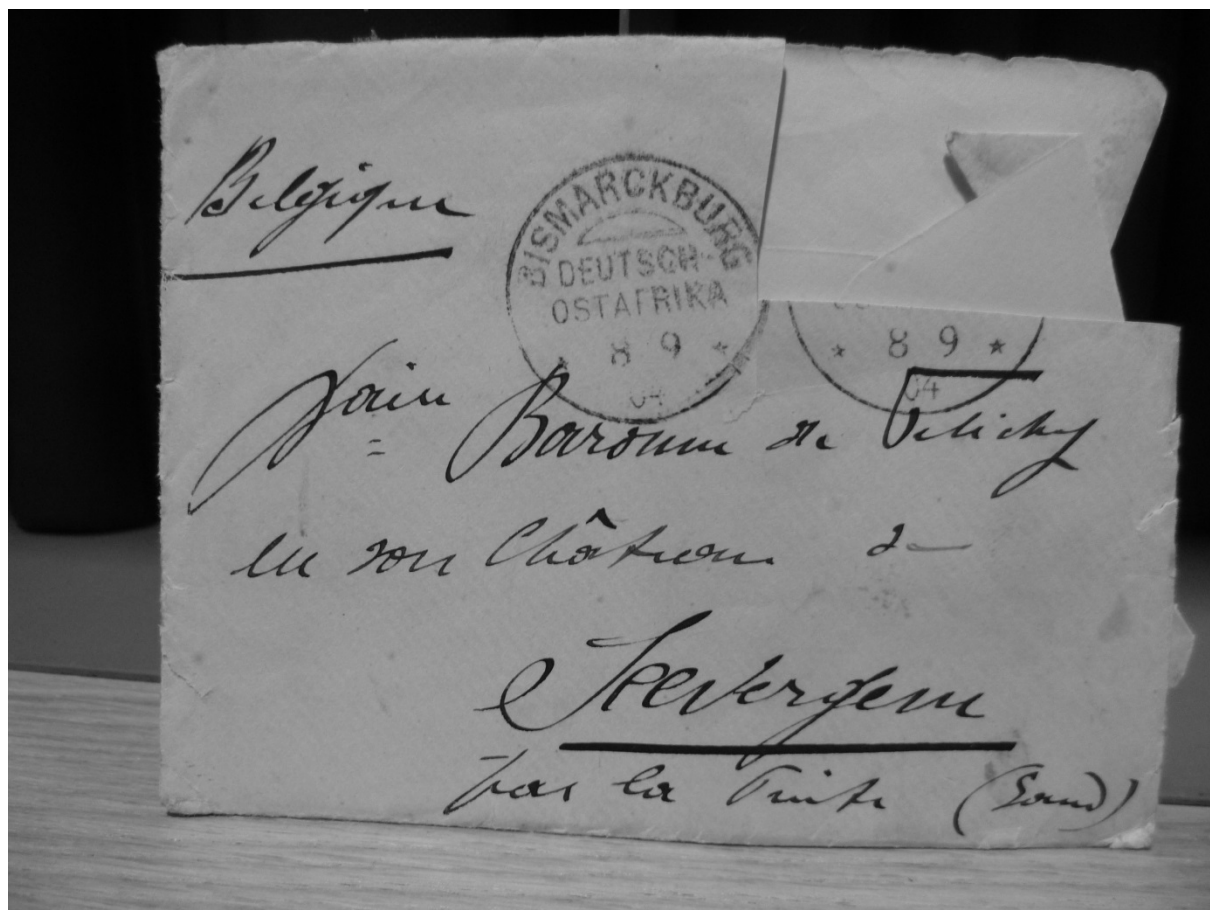 Belgique
BISMARCKBURG
DEUTSCH-
OSTAFRIKA
* 8 9 *
04
* 8 9 *
04
Baronne de Pélichy
en son Château de
Seevergem
par la Pinte (Gand)